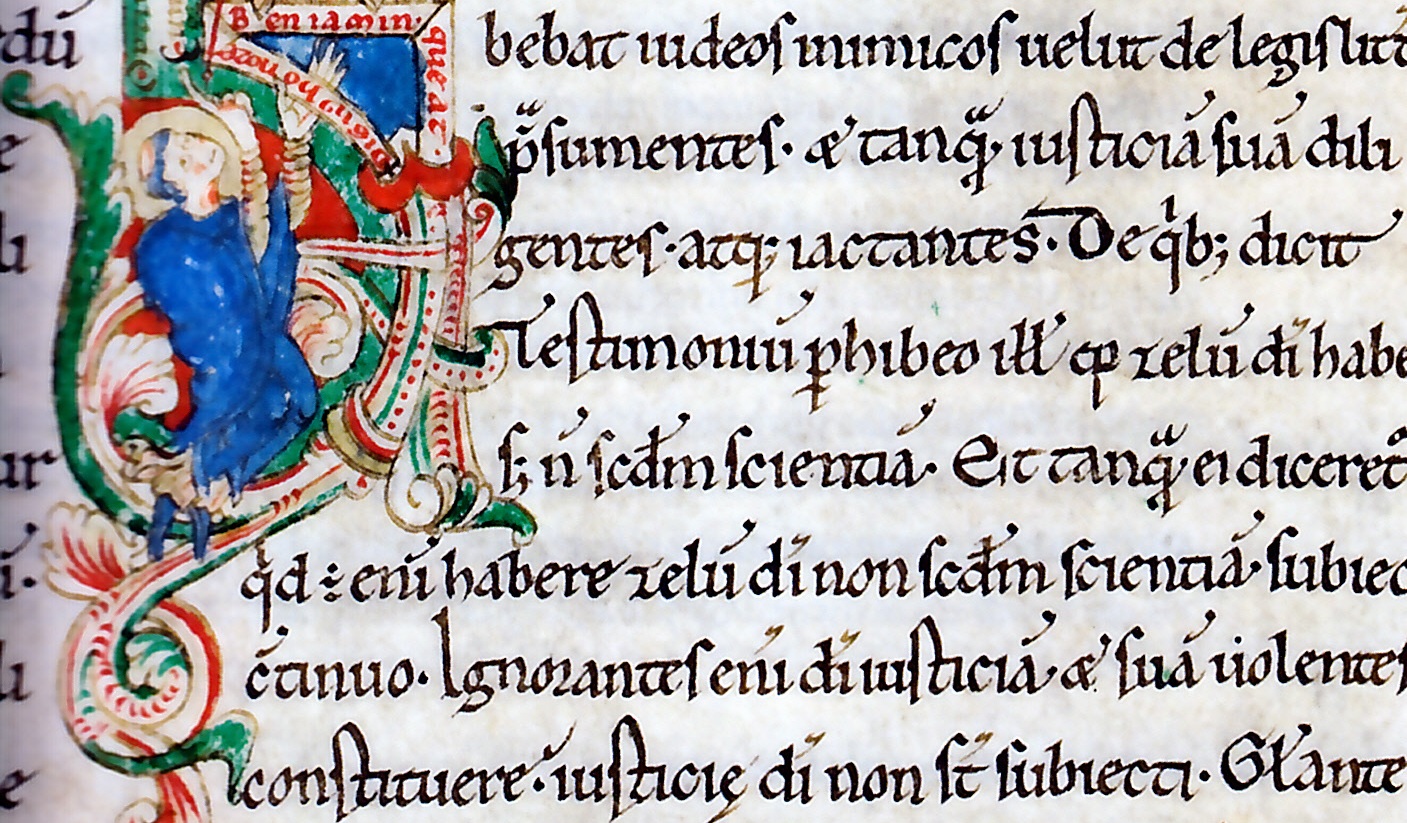 Beniamin
bebat iudeos inimicos uelut de legis litt
p̄sumentes· æ tanq̄· iusticiā suā dili
gentes· atq; iactantes̄· De qⁱb; dicit
Testimoniū ꝑhibeo illꝭ qꝓ zelū dī habe
s; n̄ scd̄m scientiā· Et tanq̄ ei diceret᷒
qⁱd ÷ enī habere zelū dī non scd̄m scientiā· subiec
c̄tinuo· Ignorantes enī dī iusticiā· æ suā uolentes
constituere· iusticię dī non st̄ subiecti· Gl̄ante